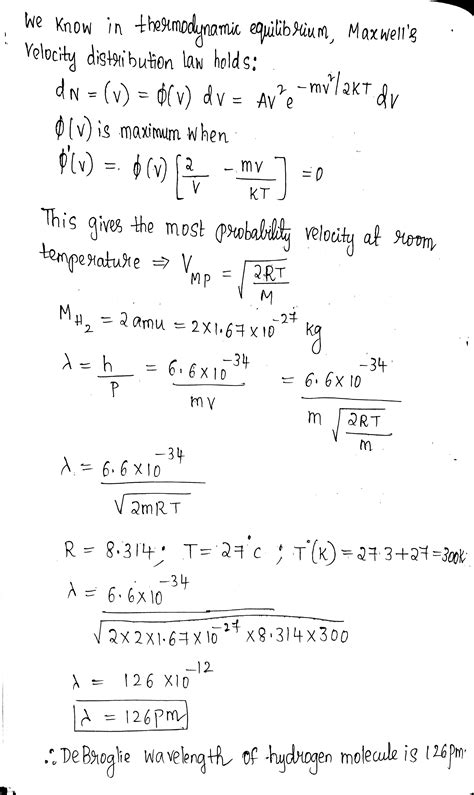 We know in thermodynamic equilibrium, Maxwell's
Velocity distribution law holds:
dN = (v) = ϕ(v) dv = Av²e^(-mv²/2KT) dv
ϕ(v) is maximum when
ϕ'(v) = ϕ(v) [2/v - mv/KT] = 0
This gives the most probability velocity at room
temperature ⇒ V_MP = √(2RT/M)
M_H₂ = 2amu = 2×1.67×10⁻²⁷ kg
λ = h/P = 6.6×10⁻³⁴/mv = 6.6×10⁻³⁴/(m√(2RT/m))
λ = 6.6×10⁻³⁴/√(2mRT)
R = 8.314; T = 27°C ; T°(K) = 273+27=300K
λ = 6.6×10⁻³⁴/√(2×2×1.67×10⁻²⁷×8.314×300)
λ = 126 ×10⁻¹²
λ = 126pm
∴ DeBroglie wavelength of hydrogen molecule is 126pm.